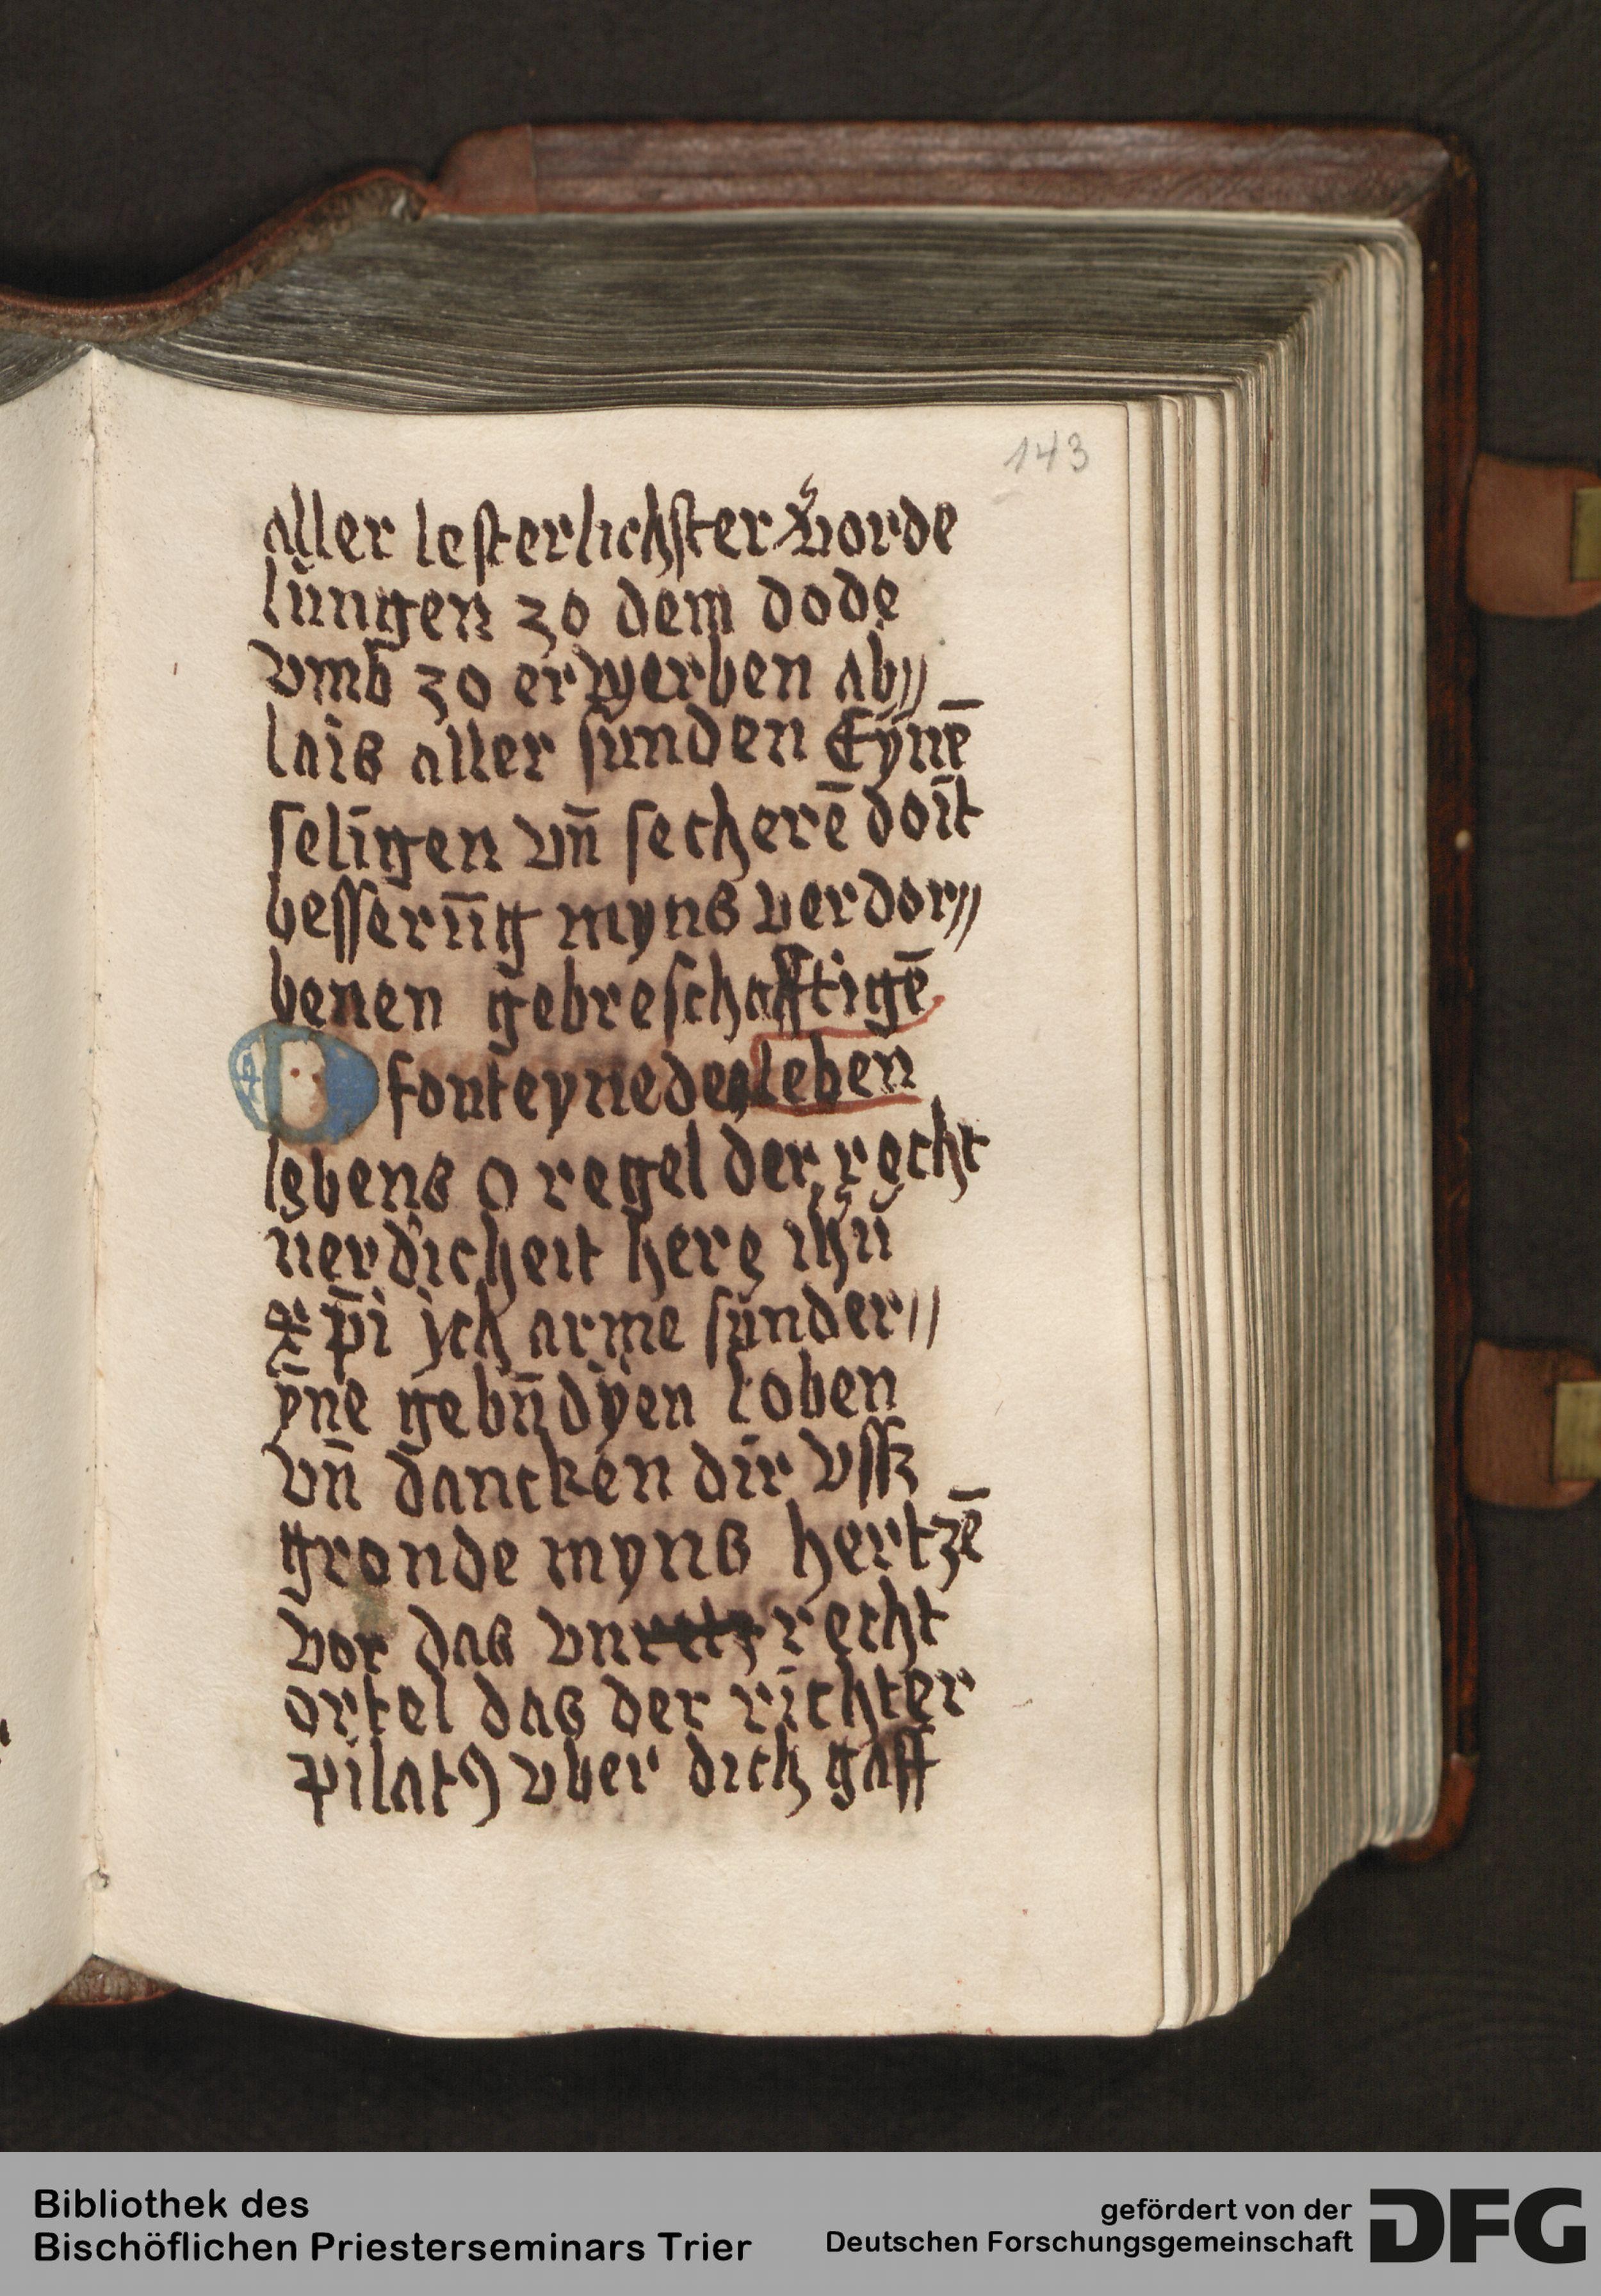 143
aller lesterlichster vorde
lungen zo dem dode
vmb zo erwerben ab〃
lais aller sunden Eynē
seligen vn̄ secherē doit
besserūg myns verdor〃
benen gebreschafftigē
O fonteyne des leben
lebens o regel der recht
uerdicheit here ihū
xp̄i jch arme sunder〃
ȳne gebūdyen loben
vn̄ dancken dir vsß
gronde myns hertzē
vor das vn recht
ortel das der richter
pilatꝰ vber dich gaff
Bibliothek des
Bischöflichen Priesterseminars Trier
gefördert von der
Deutschen Forschungsgemeinschaft
DFG